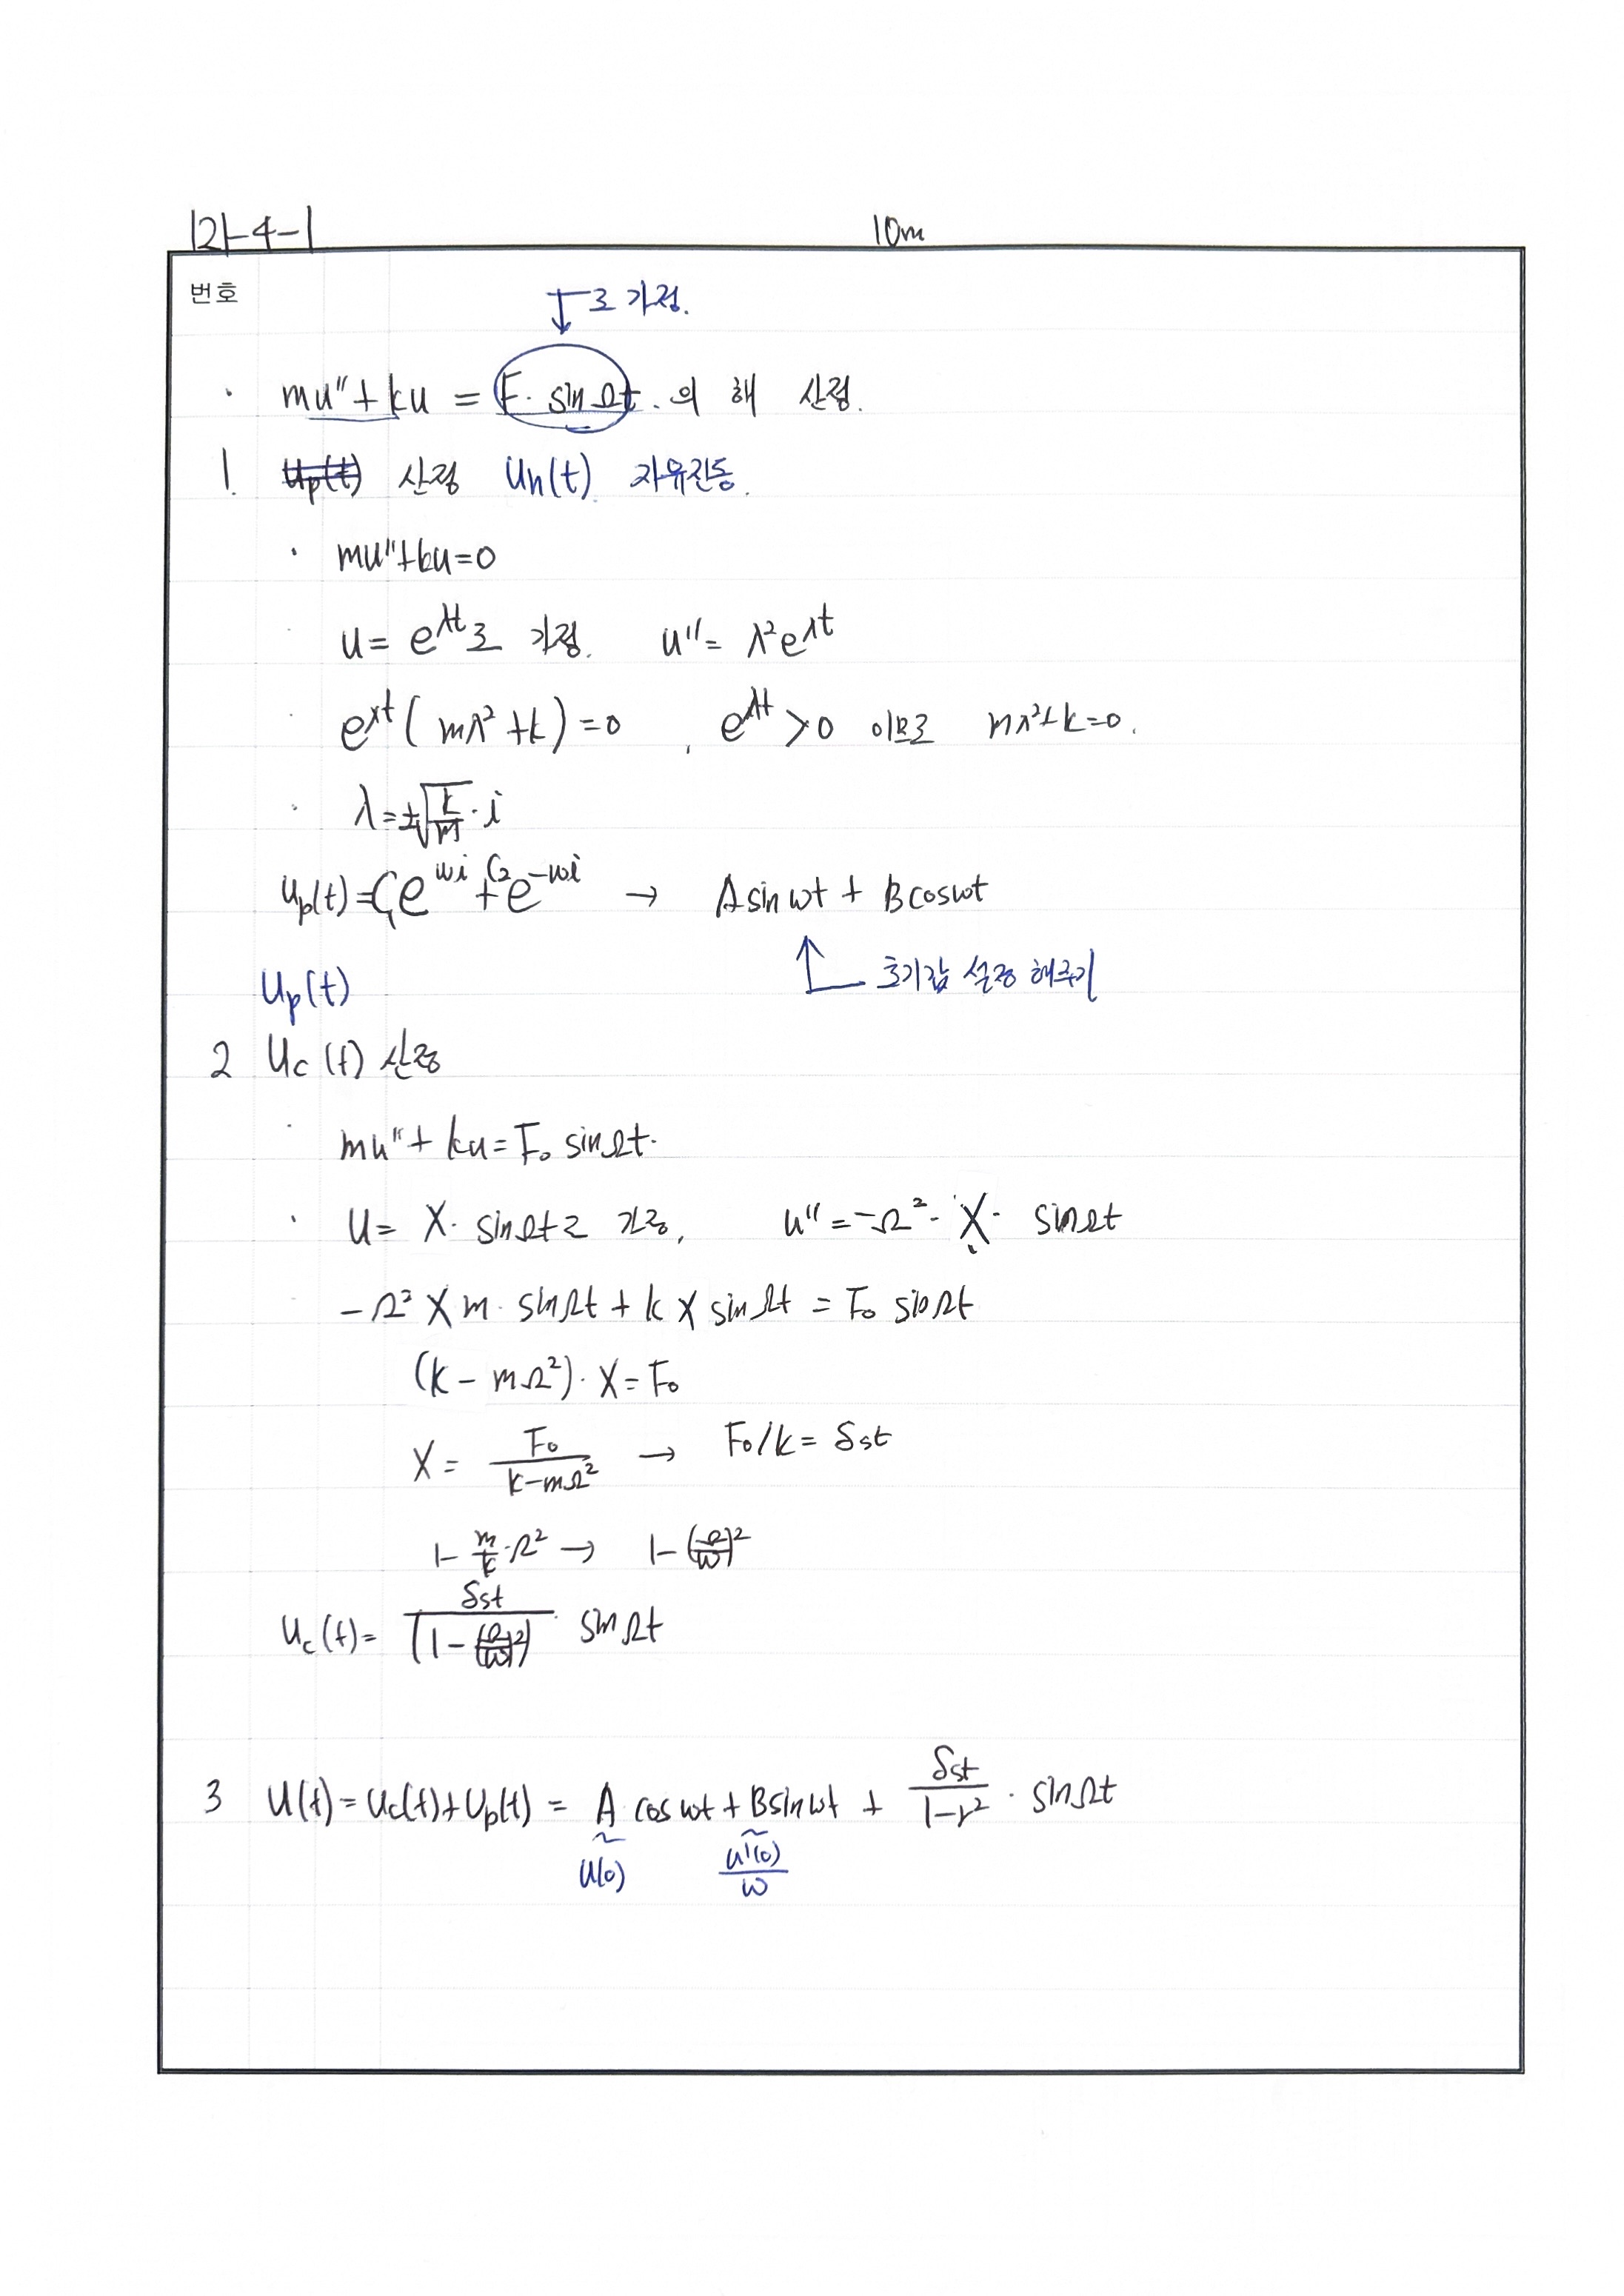 121-4-1 10m
번호
로 가정.
· mu'' + ku = F· sinΩt 의 해 산정.
1. Up(t) 산정 Uh(t) 자유진동.
· mu''+ku=0
· u = e^λt로 가정. u'' = λ²e^λt
· e^λt ( mλ² + k ) = 0 , e^λt > 0 이므로 mλ²+k=0.
· λ = ±√(k/m) · i
Up(t) = C₁e^ωi + C₂e^-ωi → A sin ωt + B cos ωt
초기값 설정 해주기
Up(t)
2 Uc (t) 산정
· mu'' + ku = F₀ sinΩt.
· u = X· sinΩt로 가정, u'' = -Ω²· X· sinΩt
-Ω² X m· sinΩt + k X sinΩt = F₀ sinΩt
(k - mΩ²)· X = F₀
X = F₀/(k-mΩ²) → F₀/k = δst
1 - m/k·Ω² → 1-(Ω/ω)²
Uc(t) = δst/(1-(Ω/ω)²) · sinΩt
3 U(t) = Uc(t)+Up(t) = A cos ωt + B sin ωt + δst/(1-r²) · sinΩt
U(0) u'(0)/ω